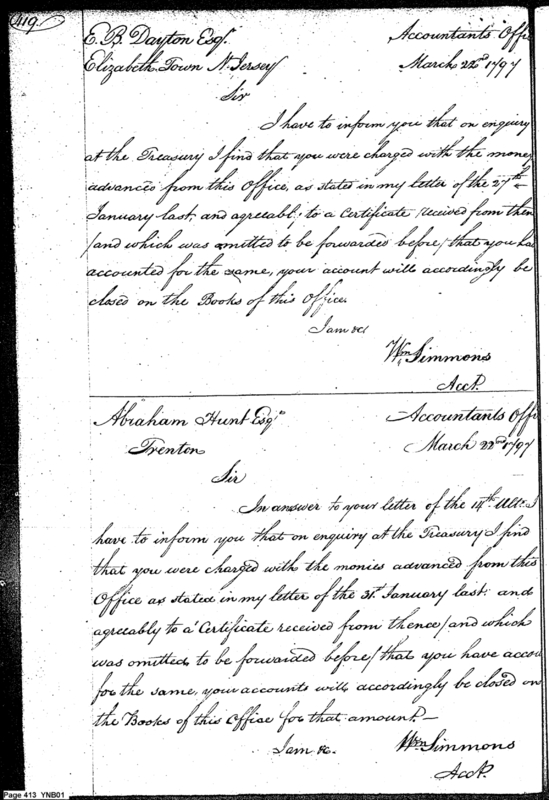 419
E. B. Dayton Esqr. Accountants Offi
Elizabeth Town N. Jersey March 22d. 1797
Sir
I have to inform you that on enquiry
at the Treasury I find that you were charged with the money
advances from this Office, as stated in my letter of the 27th
January last and agreably to a Certificate received from then
/and which was omitted to be forwarded before/ that you ha
accounted for the same, your account will accordingly be
closed on the Books of this Office.
I am &c
Wm Simmons
Acct.
Abraham Hunt Esqr Accountants Offi
Trenton March 22d 1797
Sir
In answer to your letter of the 14th. Ulto. I
have to inform you that on enquiry at the Treasury I find
that you were charged with the monies advanced from this
Office as stated in my letter of the 31st January last and
agreeably to a Certificate received from thence/ and which
was omitted to be forwarded before/ that you have accou
for the same, your accounts will accordingly be closed on
the Books of this Office for that amount.—
I am &c. Wm Simmons
Acct.
Page 413 YNB01